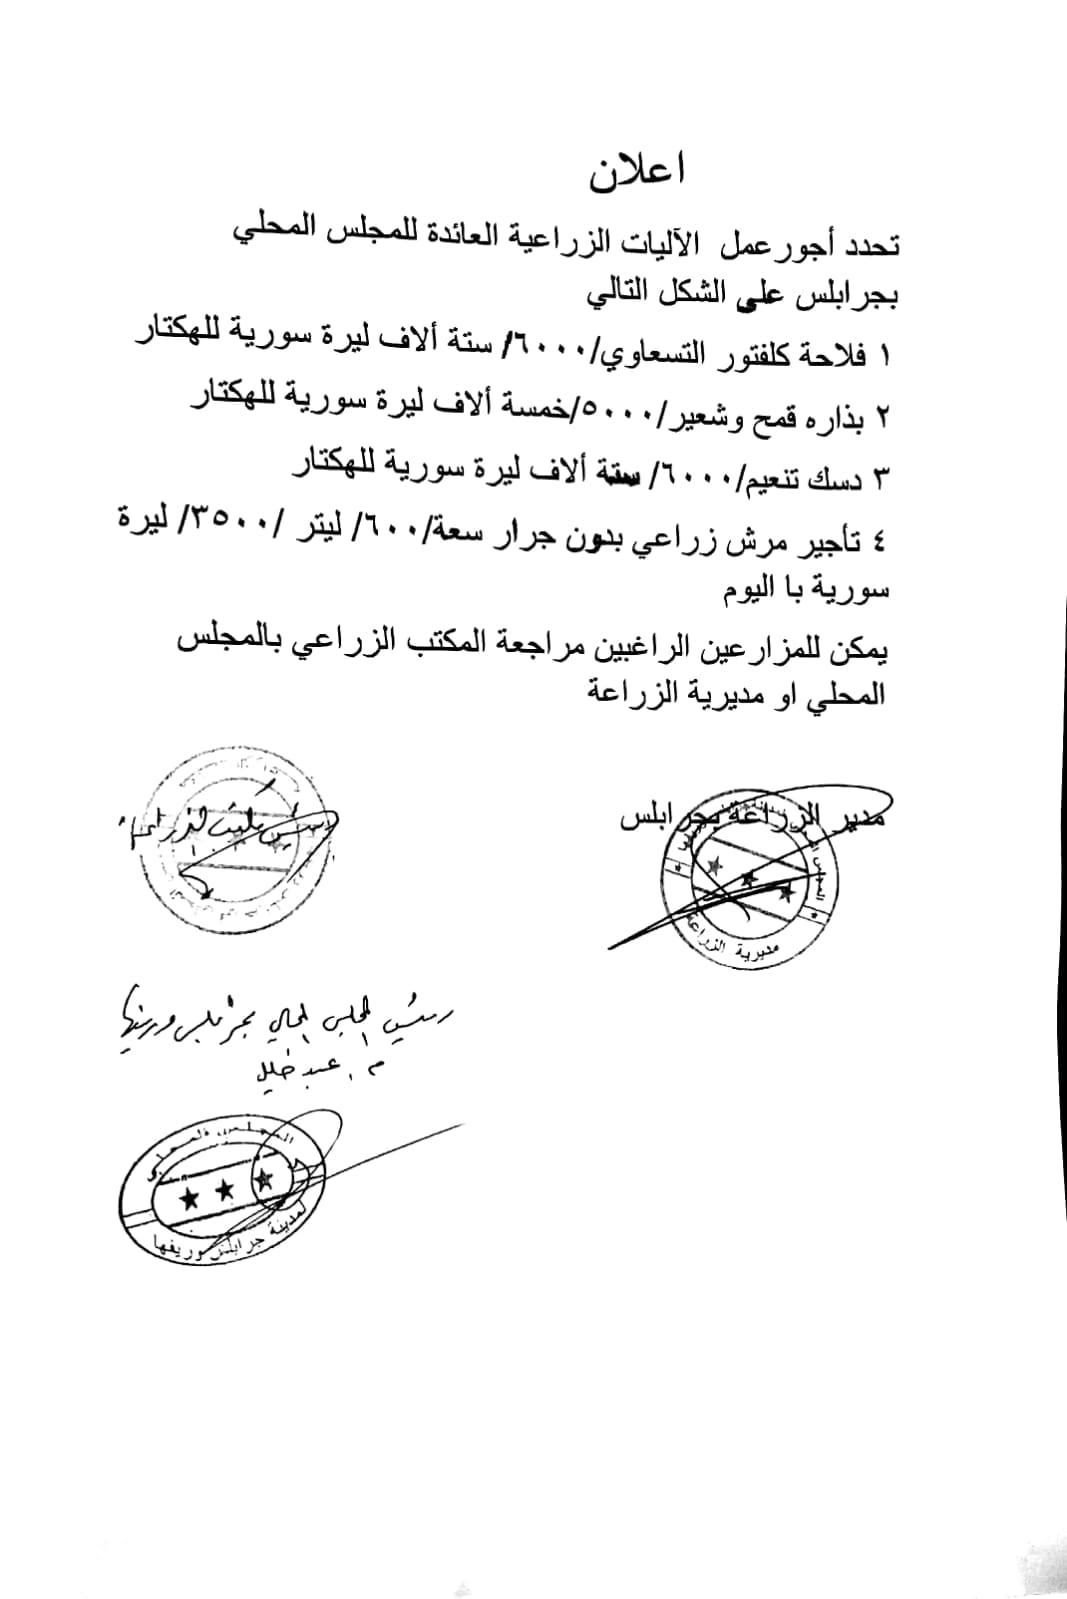 اعلان
تحدد أجور عمل الآليات الزراعية العائدة للمجلس المحلي
بجرابلس على الشكل التالي
١ فلاحة كلفتور التسعاوي/٦٠٠٠/ ستة ألاف ليرة سورية للهكتار
٢ بذاره قمح وشعير/٥٠٠٠/خمسة ألاف ليرة سورية للهكتار
٣ دسك تنعيم/٦٠٠٠/ ستة ألاف ليرة سورية للهكتار
٤ تأجير مرش زراعي بدون جرار سعة/٦٠٠/ ليتر /٣٥٠٠/ ليرة
سورية با اليوم
يمكن للمزارعين الراغبين مراجعة المكتب الزراعي بالمجلس
المحلي او مديرية الزراعة
مدير الزراعة بجرابلس
مديرية الزراعة
رئيس المكتب الزراعي
رئيس المجلس المحلي بجرابلس وريفها
م. عبد خليل
المجلس المحلي
لمدينة جرابلس وريفها